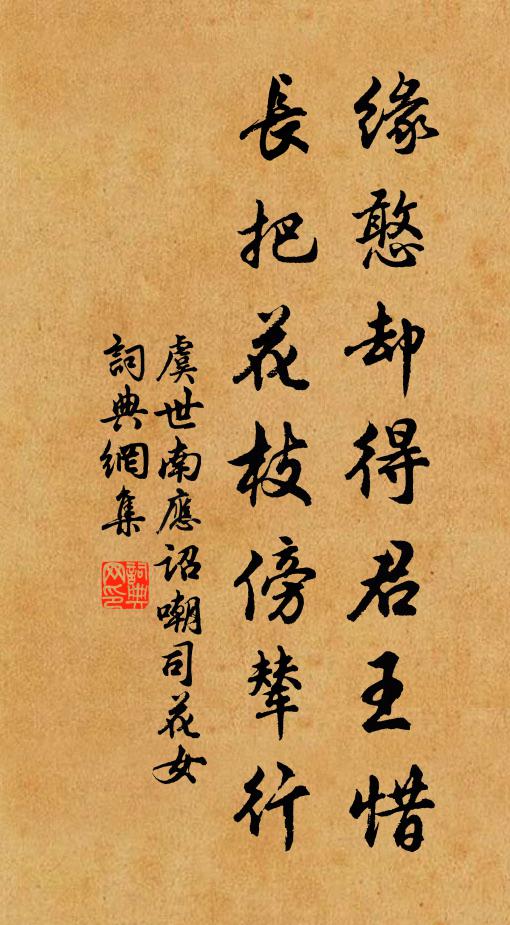 緣憨却得君王惜
長把花枝傍輦行
虞世南應詔嘲司花女
詞典網集
詞典網印